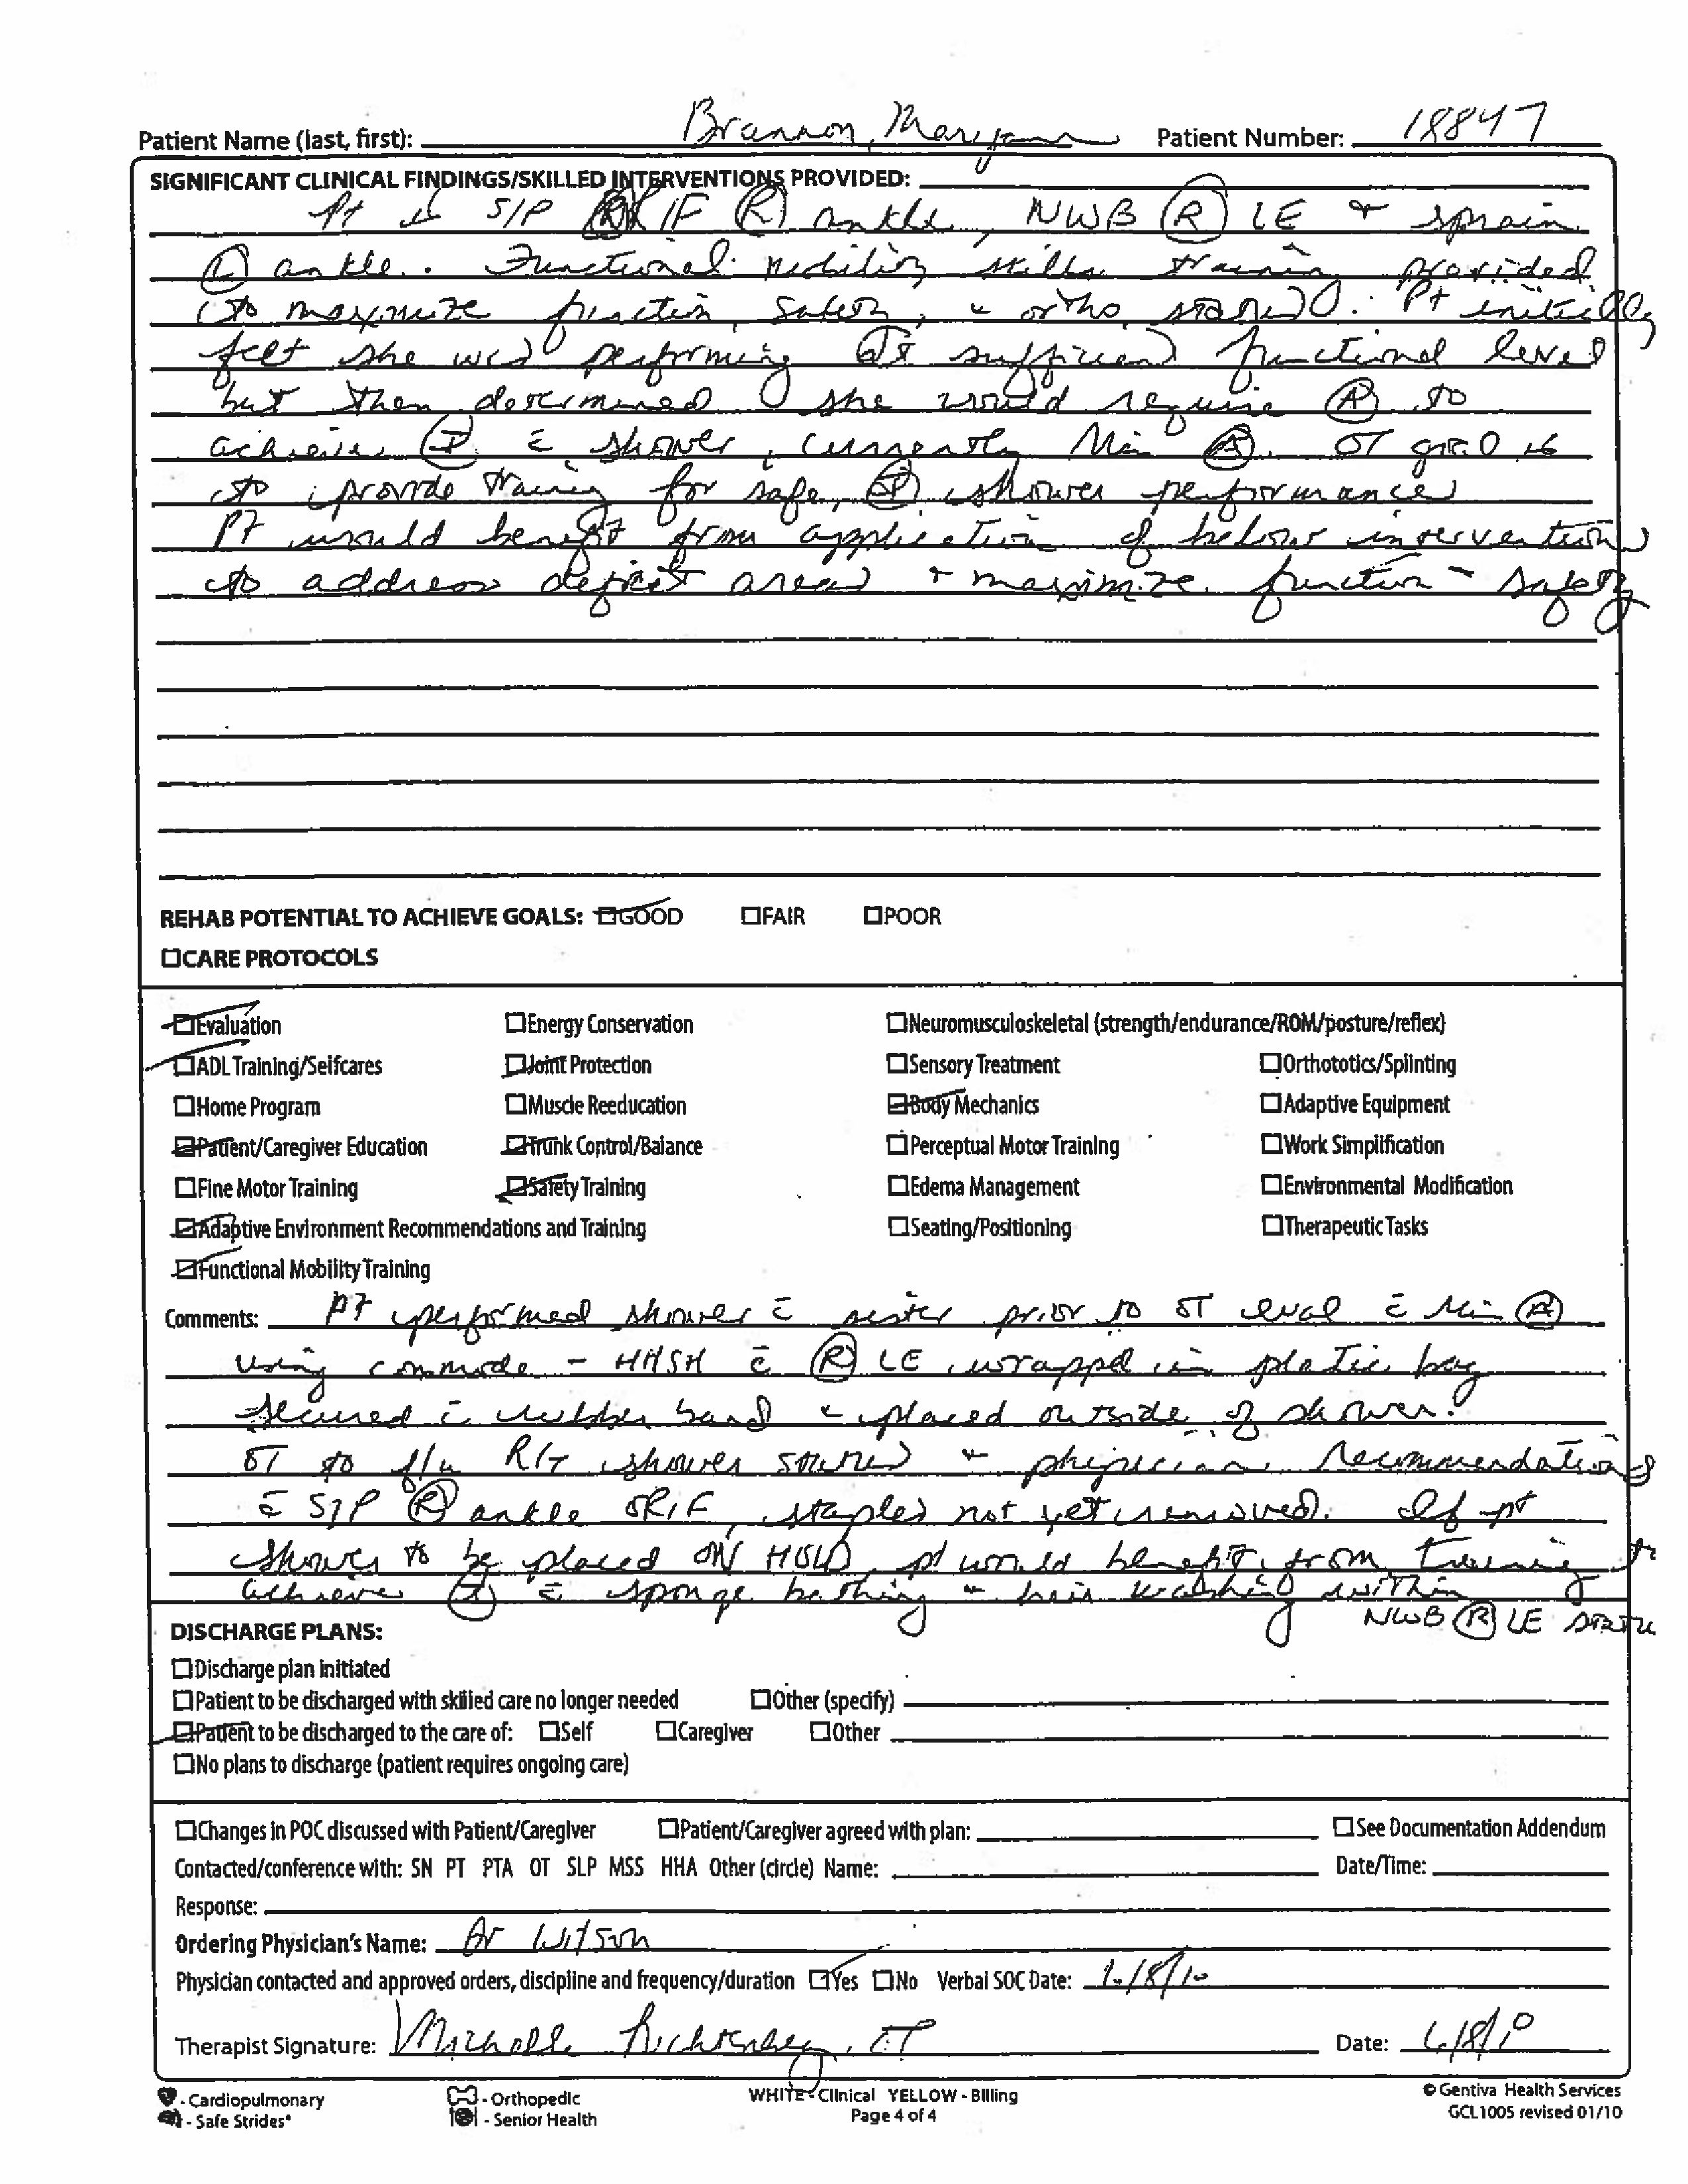 Patient Name (last, first): Brannon, Maryann Patient Number: 18847
SIGNIFICANT CLINICAL FINDINGS/SKILLED INTERVENTIONS PROVIDED:
Pt is S/P ORIF (R) ankle, NWB (R) LE & sprain
(L) ankle. Functional mobility skills training provided
to maximize function, safety, & ortho status. Pt initially
felt she was performing at sufficient functional level
but then determined she would require (A) to
achieve (I) c̄ shower, currently Min (A). OT goal is
to provide training for safe, (I) shower performance
Pt would benefit from application of below interventions
to address deficit areas & maximize function - safety
REHAB POTENTIAL TO ACHIEVE GOALS: ☑GOOD ☐FAIR ☐POOR
☐CARE PROTOCOLS
☑Evaluation ☐Energy Conservation ☐Neuromusculoskeletal (strength/endurance/ROM/posture/reflex)
☑ADL Training/Selfcares ☑Joint Protection ☐Sensory Treatment ☐Orthototics/Splinting
☐Home Program ☐Muscle Reeducation ☑Body Mechanics ☐Adaptive Equipment
☑Patient/Caregiver Education ☑Trunk Control/Balance ☐Perceptual Motor Training ☐Work Simplification
☐Fine Motor Training ☑Safety Training ☐Edema Management ☐Environmental Modification
☑Adaptive Environment Recommendations and Training ☐Seating/Positioning ☐Therapeutic Tasks
☑Functional Mobility Training
Comments: Pt performed shower c̄ sister prior to OT eval c̄ Min (A)
using commode - HHSH c̄ (R) LE wrapped in plastic bag
secured c̄ rubber band & placed outside of shower.
OT to f/u R/T shower status & physician recommendations
c̄ S/P (R) ankle ORIF, staples not yet removed. If pt
shower to be placed ON HOLD, pt would benefit from training to
achieve (I) c̄ sponge bathing & hair washing within
NWB (R) LE status
DISCHARGE PLANS:
☐Discharge plan initiated
☐Patient to be discharged with skilled care no longer needed ☐Other (specify)
☑Patient to be discharged to the care of: ☐Self ☐Caregiver ☐Other
☐No plans to discharge (patient requires ongoing care)
☐Changes in POC discussed with Patient/Caregiver ☐Patient/Caregiver agreed with plan: ☐See Documentation Addendum
Contacted/conference with: SN PT PTA OT SLP MSS HHA Other (circle) Name: Date/Time:
Response:
Ordering Physician's Name: Dr Wilson
Physician contacted and approved orders, discipline and frequency/duration ☑Yes ☐No Verbal SOC Date: 6/8/10
Therapist Signature: Michelle OT Date: 6/8/10
- Cardiopulmonary - Orthopedic WHITE - Clinical YELLOW - Billing © Gentiva Health Services
- Safe Strides® - Senior Health Page 4 of 4 GCL1005 revised 01/10